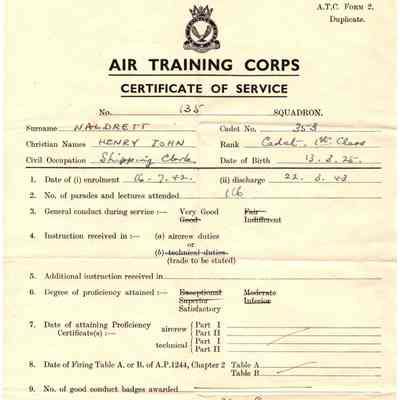 A.T.C. FORM 2,
Duplicate.
AIR TRAINING CORPS
CERTIFICATE OF SERVICE
No. 135 SQUADRON.
Surname NALDRETT Cadet No. 353
Christian Names HENRY JOHN Rank Cadet, 1st Class
Civil Occupation Shipping Clerk Date of Birth 13.3.25.
1. Date of (i) enrolment 16.7.42. (ii) discharge 22.3.43
2. No. of parades and lectures attended 116
3. General conduct during service :— Very Good Fair
Good Indifferent
4. Instruction received in :— (a) aircrew duties
or
(b) technical duties.
(trade to be stated)
5. Additional instruction received in
6. Degree of proficiency attained :— Exceptional Moderate
Superior Inferior
Satisfactory
7. Date of attaining Proficiency Certificate(s) :— aircrew { Part I
Part II
technical { Part I
Part II
8. Date of Firing Table A. or B. of A.P.1244, Chapter 2 Table A
Table B
9. No. of good conduct badges awarded